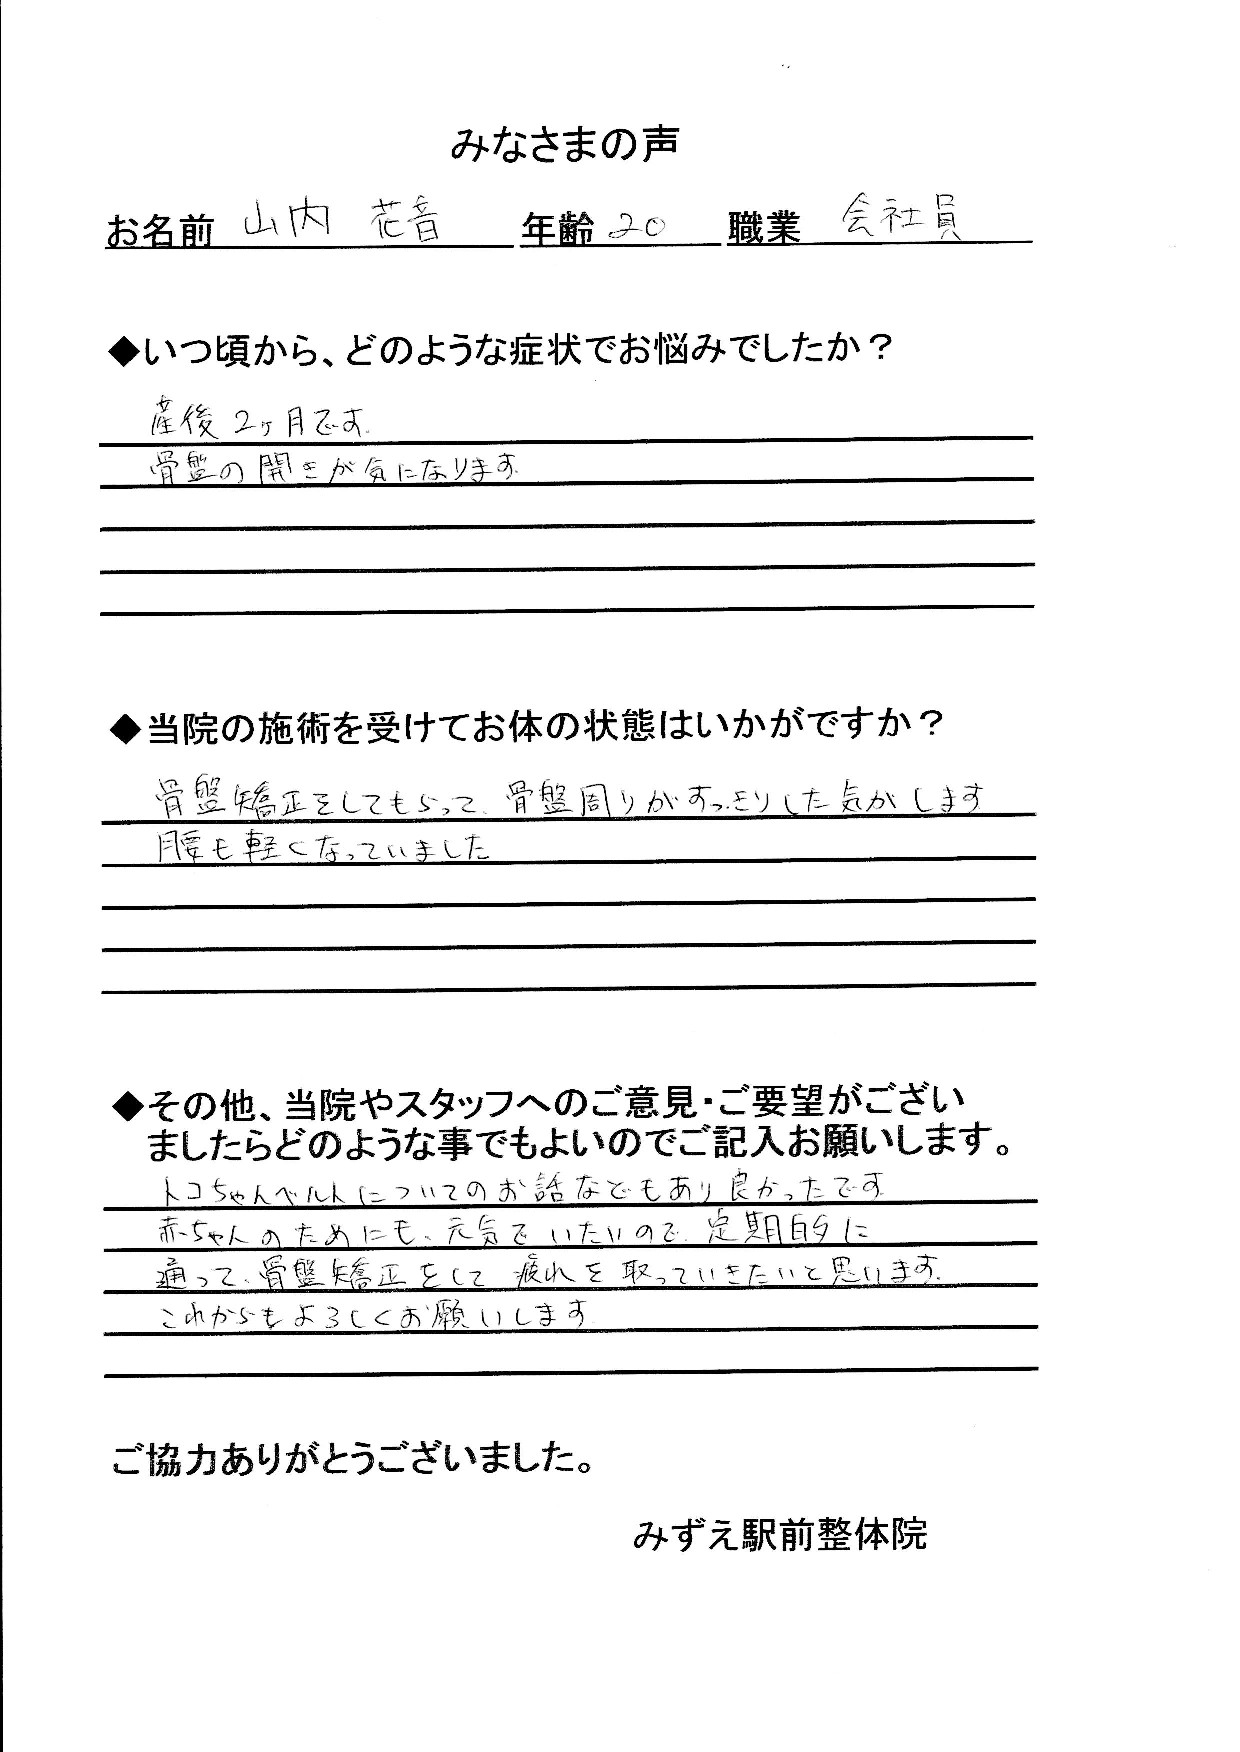 みなさまの声
お名前 山内 花音 年齢 20 職業 会社員
◆いつ頃から、どのような症状でお悩みでしたか？
産後2ヶ月です。
骨盤の開きが気になります。
◆当院の施術を受けてお体の状態はいかがですか？
骨盤矯正をしてもらって、骨盤周りがすっきりした気がします
腰も軽くなっていました
◆その他、当院やスタッフへのご意見・ご要望がござい
ましたらどのような事でもよいのでご記入お願いします。
トコちゃんベルトについてのお話などもあり良かったです
赤ちゃんのためにも、元気でいたいので、定期的に
通って、骨盤矯正をして疲れを取っていきたいと思います。
これからもよろしくお願いします
ご協力ありがとうございました。
みずえ駅前整体院